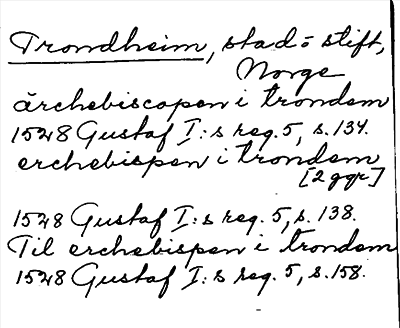 Trondheim, stad o stift,
Norge
ärchebiscopen i trondem
1528 Gustaf I:s reg. 5, s. 134.
erchebispen i trondem
[2 ggr]
1528 Gustaf I:s reg. 5, s. 138.
Til erchebispen i trondem
1528 Gustaf I:s reg. 5, s. 158.